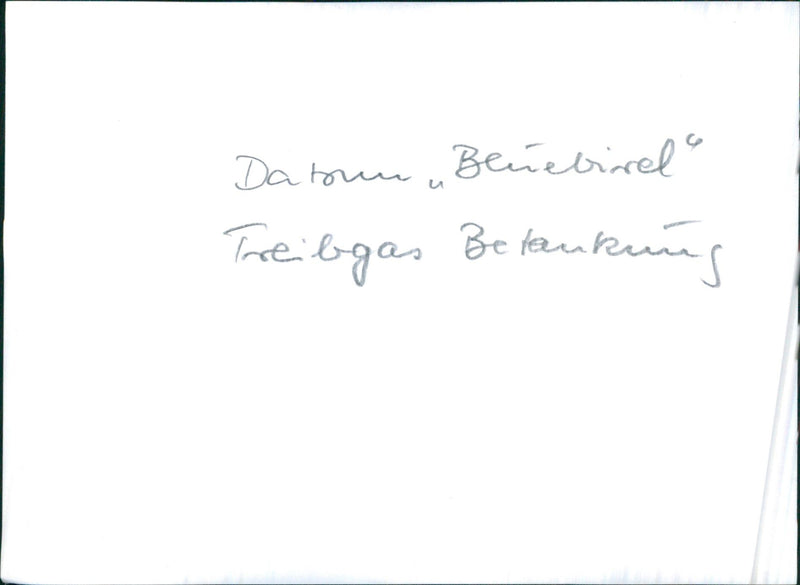 Datsun „Bluebird“
Treibgas Betankung